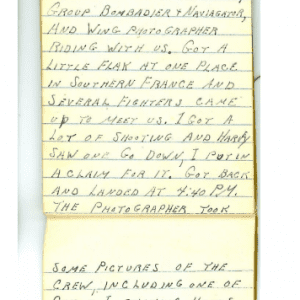 GROUP BOMBADIER & NAVAGATOR,
AND WING PHOTOGRAPHER
RIDING WITH US. GOT A
LITTLE FLAK AT ONE PLACE
IN SOUTHERN FRANCE AND
SEVERAL FIGHTERS CAME
UP TO MEET US. I GOT A
LOT OF SHOOTING AND HARPY
SAW ONE GO DOWN, I PUT IN
A CLAIM FOR IT. GOT BACK
AND LANDED AT 4:40 P.M.
THE PHOTOGRAPHER TOOK
SOME PICTURES OF THE
CREW, INCLUDING ONE OF